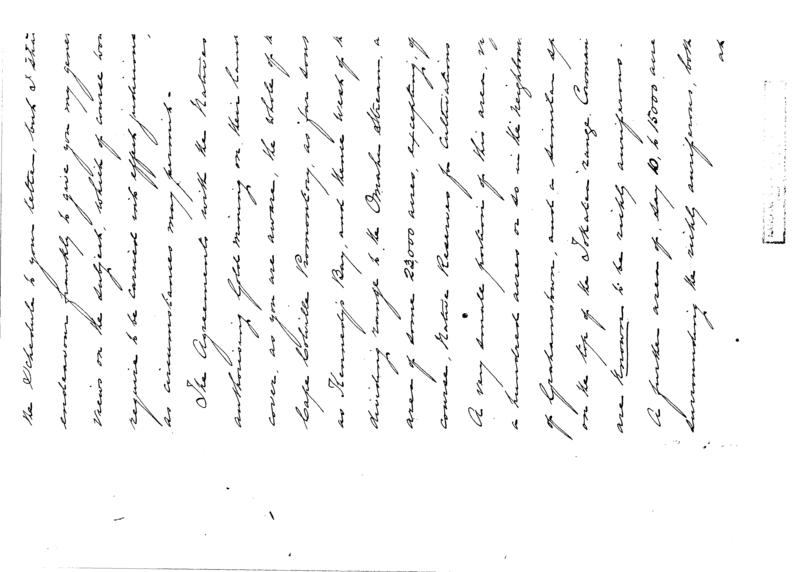 the Schedule to your letter, but I sha
endeavour frankly to give you my gener
views on the subject, which of course wou
require to be carried into effect judicious
as circumstances may permit.
The Agreements with the Natives
authorising Gold mining on their lan
cover, as you are aware, the whole of the
Cape Colville Promontory, as far sout
as Kennedy's Bay, and thence West of th
dividing range to the Omahu Stream, a
area of some 23,000 acres, excepting, of
course, Native Reserves for Cultivations
A very small portion of this area, viz
a hundred acres or so in the neighbour
of Grahamstown, and a similar sp
on the top of the Tokatea range Coroman
are known to be richly auriferous.
A further area of, say 10, to 15000 acre
surrounding the richly auriferous, both
at